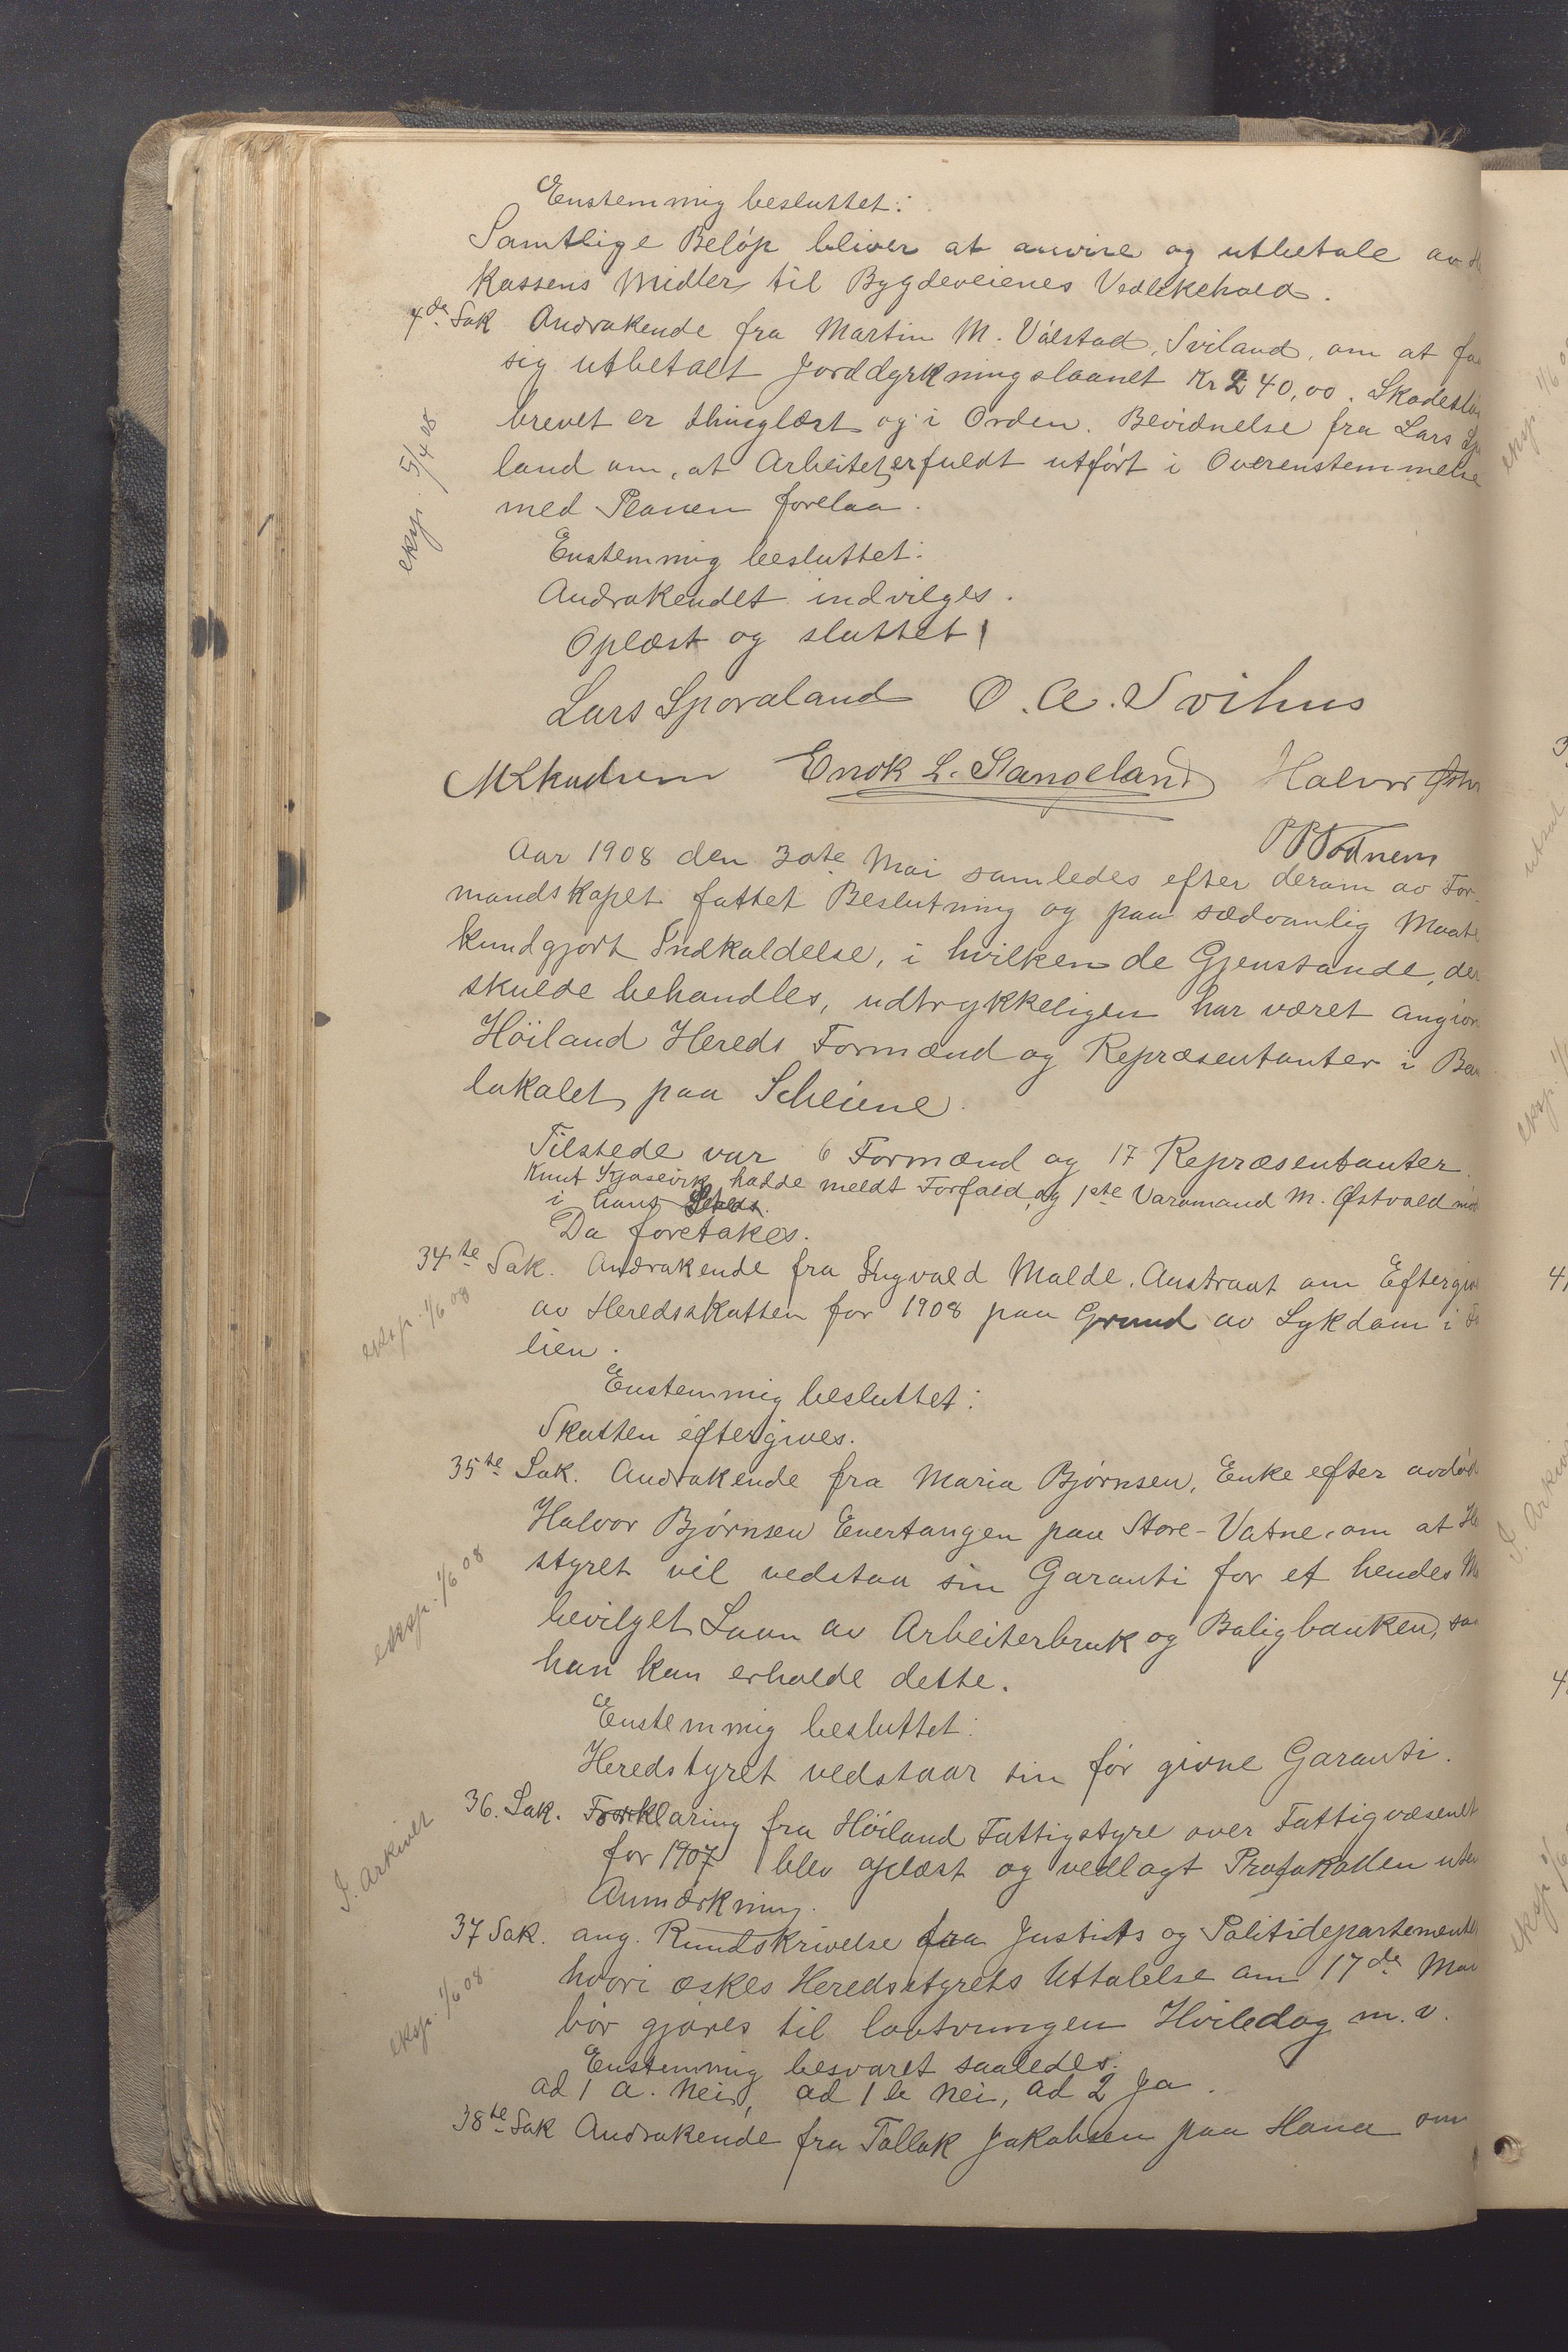 Enstemmig besluttet:
Samtlige Beløp bliver at anvise og utbetale av
Kassens Midler til Bygdeveienes Vedlikehold.
4de Sak Andrakende fra Martin M. Válstad, Sviland, om at faa
sig utbetalt Jorddyrkningslaanet Kr 240,00. Skadesløs
brevet er thinglæst og i Orden. Bevidnelse fra Lars Spo
land om, at Arbeitet er fuldt utført i Overenstemmelse
eksp. 5/4 08
med Planen forelaa.
Enstemmig besluttet:
Andrakendet indvilges.
Oplæst og sluttet
Lars Sporaland O. A. Svihus
M Skadsem Enok L. Stangeland Halvor
Aar 1908 den 30te Mai samledes efter derom av For-
mandskapet fattet Beslutning og paa sædvanlig Maate
kundgjort Indkaldelse, i hvilken de Gjenstande, der
skulde behandles, udtrykkeligen har været angivn
Höiland Hereds Formænd og Repræsentanter i
lokalet paa Scheiene.
Tilstede var 6 Formænd og 17 Repræsentanter.
Knut hadde meldt Forfald, og 1ste Varamand M. Østvold
i hans Sted.
Da foretakes.
34te Sak. Andrakende fra Ingvald Malde, Austraat om Eftergiv
eksp. 1/6 08
av Heredsskatten for 1908 paa Grund av Sykdom i
lien.
Enstemmig besluttet:
Skatten eftergives.
35te Sak. Andrakende fra Maria Bjørnsen, Enke efter avdød
Halvor Bjørnsen Evertangen paa Store-Vatne, om at He
eksp. 1/6 08
styret vil vedstaa sin Garanti for et hendes M
bevilget Laan av Arbeiterbruk og Boligbanken, saa
hun kan erholde dette.
Enstemmig besluttet:
Heredstyret vedstaar sin før givne Garanti.
36. Sak. Forklaring fra Höiland Fattigstyre over Fattigvæsenet
I. Arkivet
for 1907 blev oplæst og vedlagt Protokollen uten
Anmærkning.
37 Sak. ang. Rundskrivelse fra Justits og Politidepartementet
eksp. 1/6 08
hvori æskes Heredsstyrets Uttalelse om 17de Mai
bör gjöres til lovtvungen Hviledag m.v.
Enstemmig besvaret saaledes:
ad 1 a. Nei, ad 1 b Nei, ad 2 Ja.
38te Sak Andrakende fra Tollak Jakobsen paa Hana om